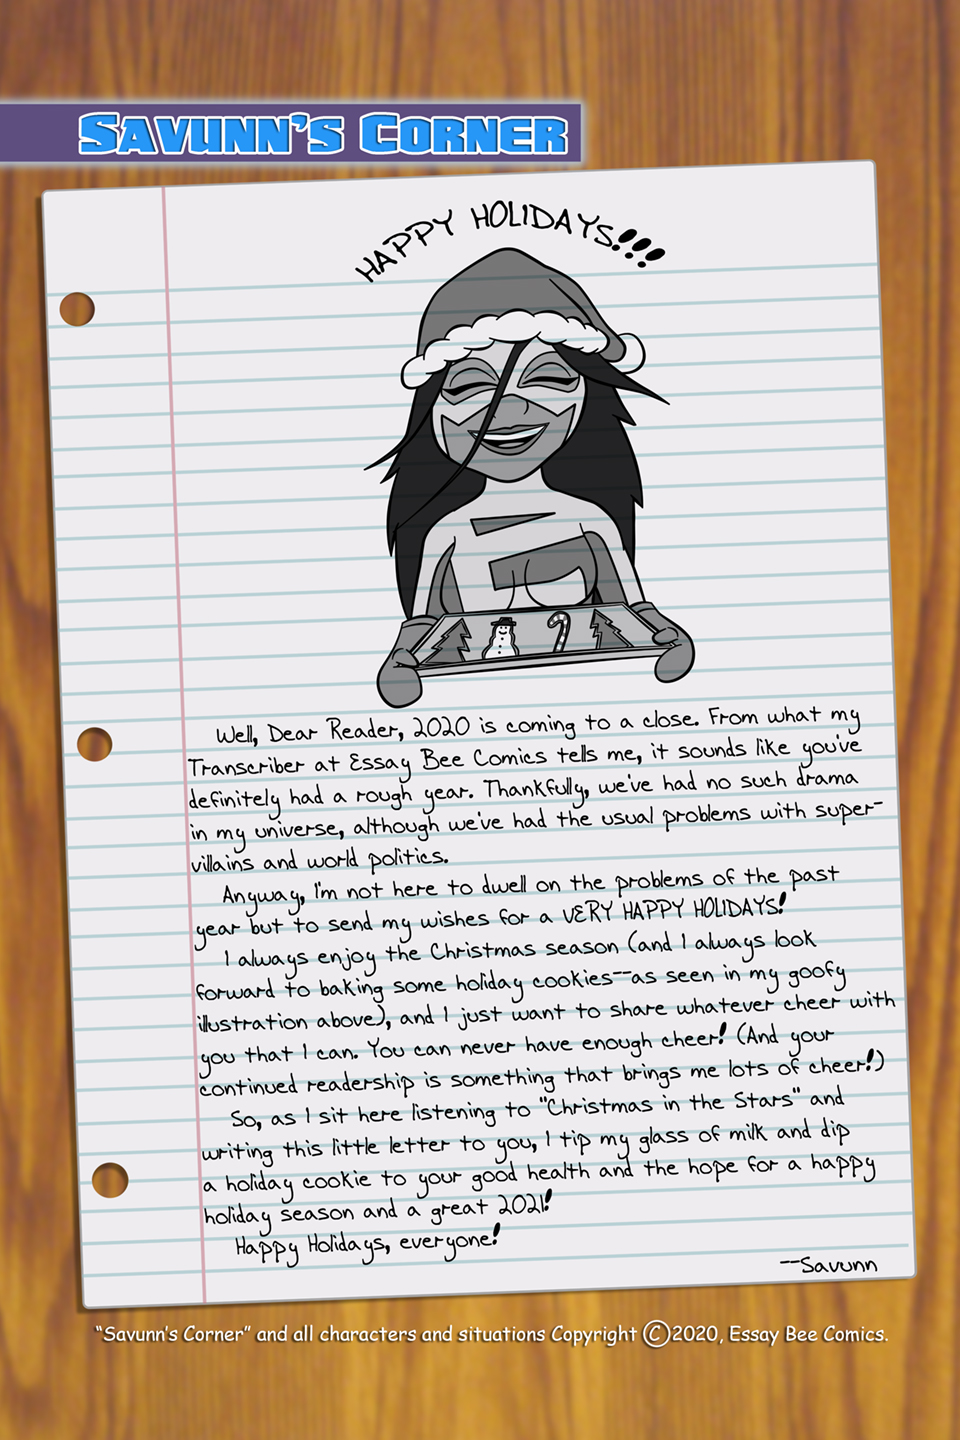 SAVUNN'S CORNER
HAPPY HOLIDAYS!!!
Well, Dear Reader, 2020 is coming to a close. From what my
Transcriber at Essay Bee Comics tells me, it sounds like you've
definitely had a rough year. Thankfully, we've had no such drama
in my universe, although we've had the usual problems with super-
villains and world politics.
Anyway, I'm not here to dwell on the problems of the past
year but to send my wishes for a VERY HAPPY HOLIDAYS!
I always enjoy the Christmas season (and I always look
forward to baking some holiday cookies--as seen in my goofy
illustration above), and I just want to share whatever cheer with
you that I can. You can never have enough cheer! (And your
continued readership is something that brings me lots of cheer!)
So, as I sit here listening to "Christmas in the Stars" and
writing this little letter to you, I tip my glass of milk and dip
a holiday cookie to your good health and the hope for a happy
holiday season and a great 2021!
Happy Holidays, everyone!
--Savunn
"Savunn's Corner" and all characters and situations Copyright ©2020, Essay Bee Comics.